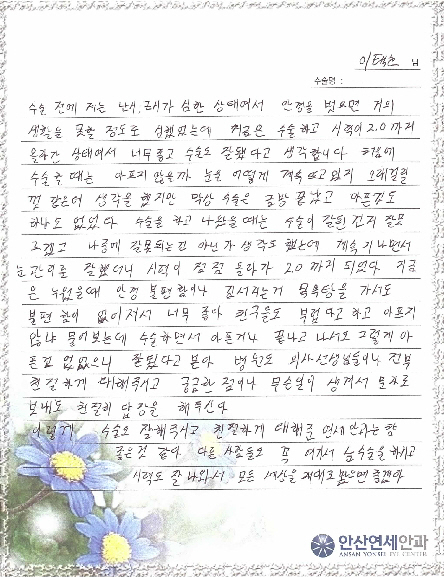 이택근 님
수술명 :
수술 전에 저는 난시, 근시가 심한 상태여서 안경을 벗으면 거의
생활을 못할 정도로 심했었는데 지금은 수술하고 시력이 2.0 까지
올라간 상태여서 너무 좋고 수술도 잘됐다고 생각합니다 처음에
수술 할 때는 아프지 않을까 눈을 어떻게 계속 뜨고 있지 오래걸릴
것 같은데 생각을 했지만 막상 수술은 금방 끝났고 아픈감도
하나도 없었다 수술을 하고 나왔을때는 수술이 잘된건지 잘못
나중에 잘못되는건 아닌가 생각도 했는데 계속 지나면서
눈관리를 잘했더니 시력이 점점 올라가 2.0 까지 되었다 지금
은 누웠을때 안경 불편함이나 김서리는거 목욕탕을 가서도
불편함이 없어져서 너무 좋아 친구들도 부럽다고 하고 아프지
않냐 물어보는데 수술하면서 아픈거나 끝나고 나서도 그렇게 아
픈건 없었으니 잘됐다고 본다 병원도 의사선생님들이나 전부
친절하게 대해주시고 궁금한 점이나 무슨일이 생겨서 문자로
보내도 친절히 답장을 해주신다
이렇게 수술도 잘해주시고 친절하게 대해준 연세안과는 참
좋은것 같다 다른 사람들도 꼭 여기서 눈수술을 하시고
시력도 잘 나와서 모든 세상을 제대로 봤으면 좋겠다
안산연세안과
ANSAN YONSEI EYE CENTER